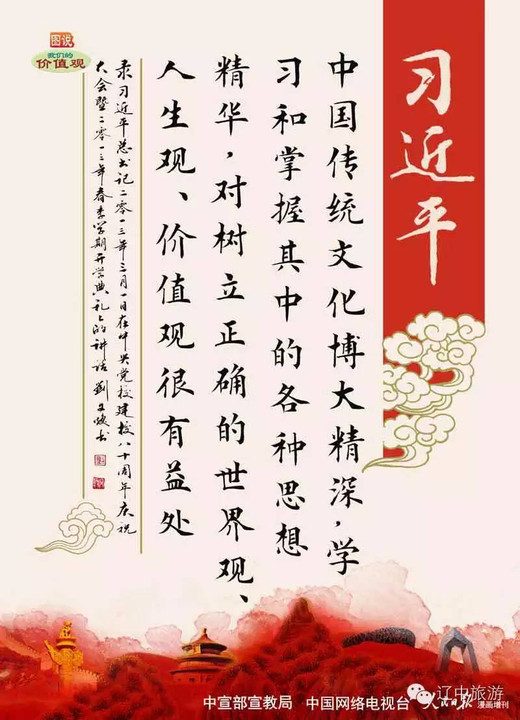 习近平
中国传统文化博大精深，学
习和掌握其中的各种思想
精华，对树立正确的世界观、
人生观、价值观很有益处
录习近平总书记二〇一三年三月一日在中央党校建校八十周年庆祝
大会暨二〇一三年春季学期开学典礼上的讲话 刘文斌书
图说
我们的
价值观
中宣部宣教局 中国网络电视台 人民日报 漫画增刊
辽中旅游